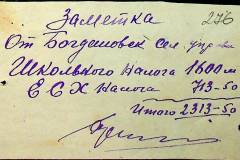 Заметка 276
От Богдановск сел. управы
Школького налога 1600 м
Е С Х налога 713-50
Итого 2313-50